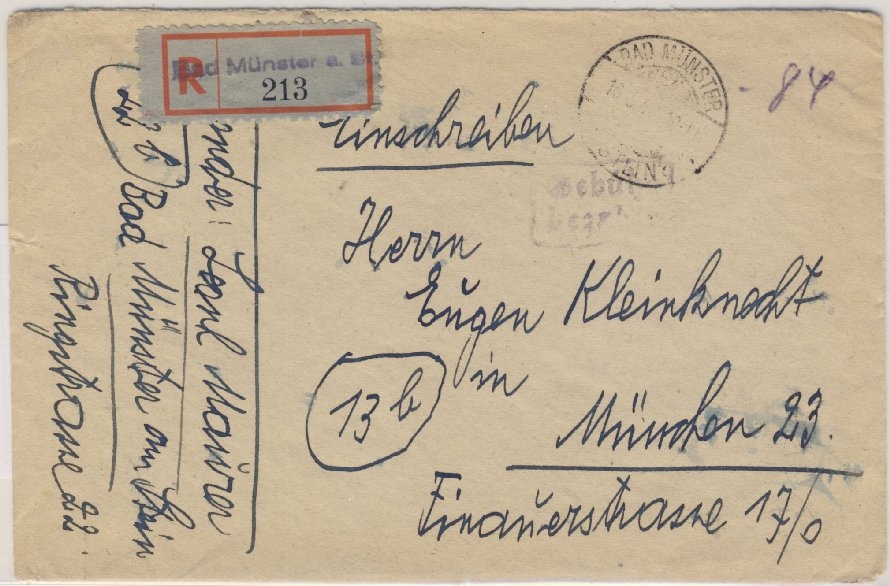 R
Bad Münster a. St.
213
BAD MÜNSTER
- 84
Einschreiben
Gebühr
Herrn
Eugen Kleinknecht
in
13b
München 23.
Finauerstrasse 17/0
Maurer
22b Bad Münster am Stein
Ringstrasse 22.